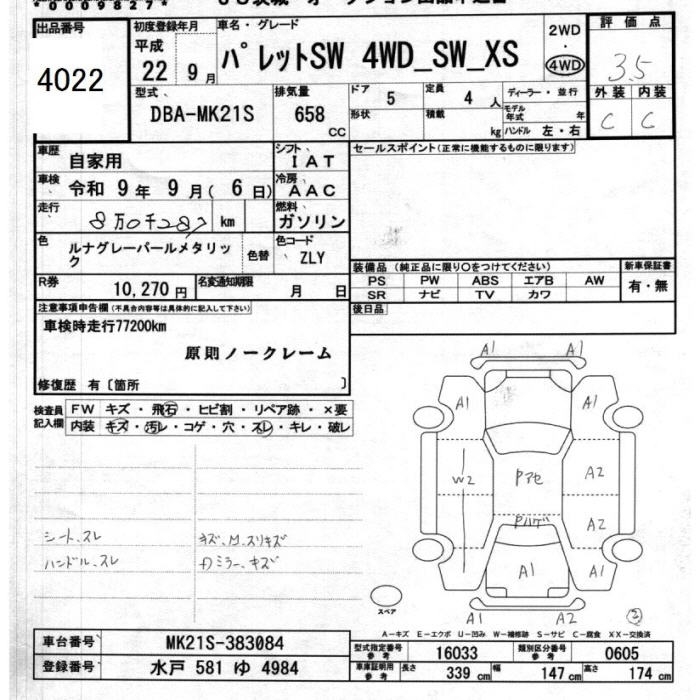 *00098277*
出品番号
4022
初度登録年月
平成
22 年 9 月
車名・グレード
パレットSW 4WD_SW_XS
2WD
・
4WD
評価点
3.5
外装 内装
C C
型式
DBA-MK21S
排気量
658
CC
ドア
5
定員
4 人
形状
積載
kg
ディーラー・並行
モデル年式 年
ハンドル 左・右
車歴
自家用
シフト
IAT
車検
令和 9 年 9 月 ( 6 日)
冷房
AAC
走行
8万0千287 km
燃料
ガソリン
色
ルナグレーパールメタリッ
ク
色替
色コード
ZLY
R券
10,270 円
名変通知期限
月 日
セールスポイント(正常に機能するものに限ります)
装備品 (純正品に限り○をつけてください)
PS PW ABS エアB AW
SR ナビ TV カワ
新車保証書
有・無
後日品
注意事項申告欄(不具合内容等は具体的に記入して下さい)
車検時走行77200km
原則ノークレーム
修復歴 有〔箇所 〕
検査員
記入欄
FW キズ・飛石・ヒビ割・リペア跡・×要
内装 キズ・汚レ・コゲ・穴・スレ・キレ・破レ
シート、スレ
ハンドル、スレ
キズ、M、スリキズ
Dミラー、キズ
A1 A1
A1 A1
W2 Pアセ A2
Pハゲ A2
A1 A1
A1 A2
スペア
②
A-キズ E-エクボ U-凹み W-補修跡 S-サビ C-腐食 XX-交換済
車台番号
MK21S-383084
登録番号
水戸 581 ゆ 4984
型式指定番号
参考
16033
類別区分番号
参考
0605
車庫証明用
参考
長さ
339 cm
幅
147 cm
高さ
174 cm